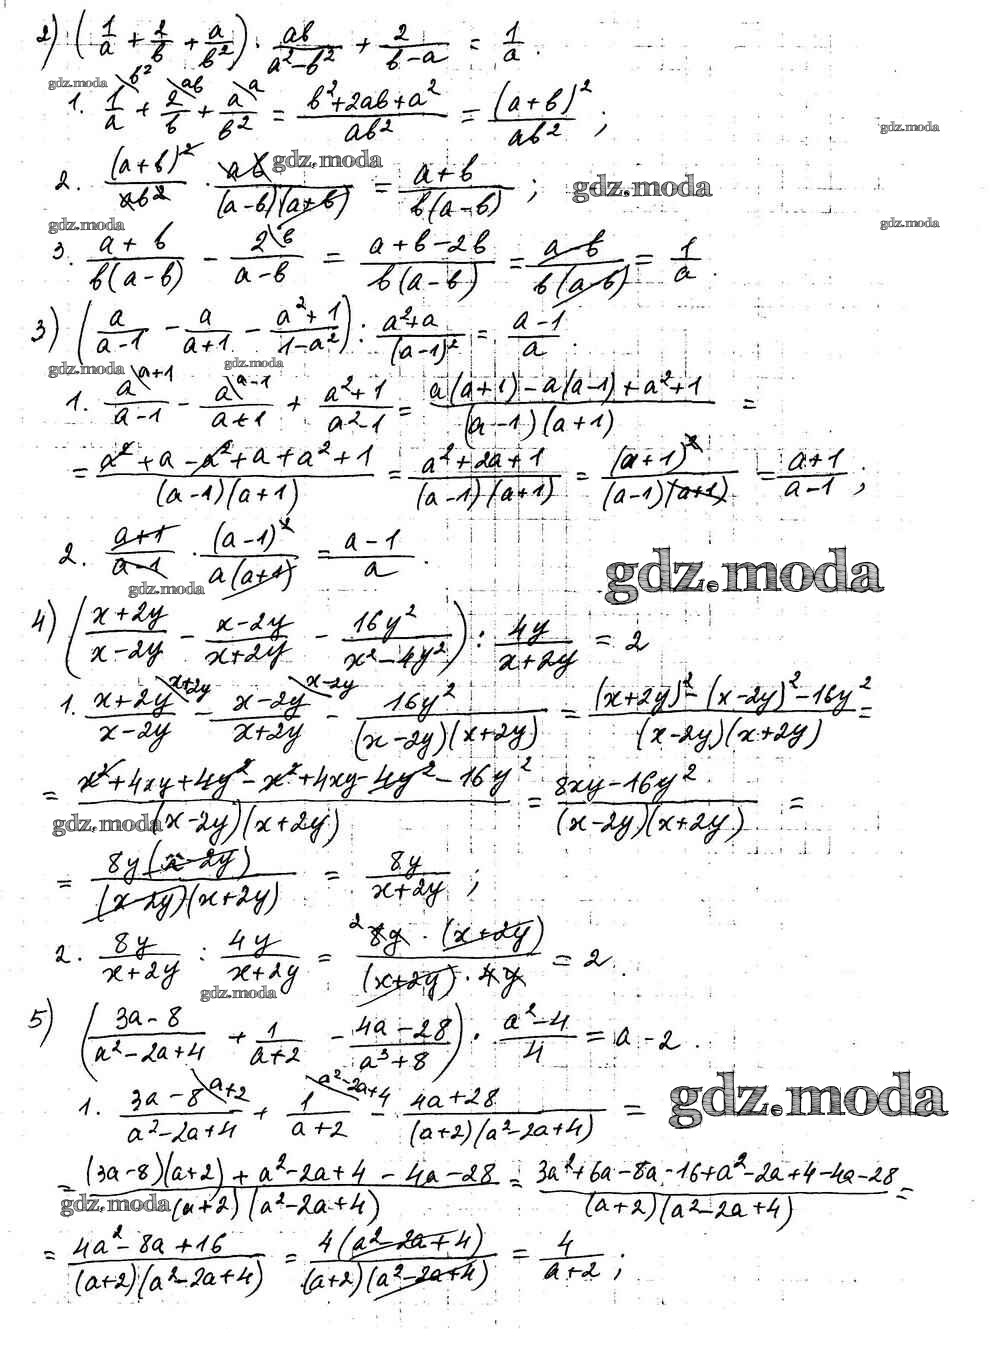 2) (1/a + 2/b + a/b²) · ab/(a²-b²) + 2/(b-a) = 1/a.
gdz.moda
1. 1/a\b² + 2/b\ab + a/b²\a = (b²+2ab+a²)/(ab²) = (a+b)²/(ab²);
gdz.moda
2. (a+b)²/(ab²) · ab/((a-b)(a+b)) = (a+b)/(b(a-b));
gdz.moda
gdz.moda
gdz.moda
gdz.moda
3. (a+b)/(b(a-b)) - 2\b/(a-b) = (a+b-2b)/(b(a-b)) = (a-b)/(b(a-b)) = 1/a.
3) (a/(a-1) - a/(a+1) - (a²+1)/(1-a²)) : (a²+a)/(a-1)² = (a-1)/a.
gdz.moda
gdz.moda
1. a\a+1/(a-1) - a\a-1/(a+1) + (a²+1)/(a²-1) = (a(a+1)-a(a-1)+a²+1)/((a-1)(a+1)) =
= (a²+a-a²+a+a²+1)/((a-1)(a+1)) = (a²+2a+1)/((a-1)(a+1)) = (a+1)²/((a-1)(a+1)) = (a+1)/(a-1);
2. (a+1)/(a-1) · (a-1)²/(a(a+1)) = (a-1)/a.
gdz.moda
gdz.moda
4) ((x+2y)/(x-2y) - (x-2y)/(x+2y) - 16y²/(x²-4y²)) : 4y/(x+2y) = 2
1. (x+2y)\x+2y/(x-2y) - (x-2y)\x-2y/(x+2y) - 16y²/((x-2y)(x+2y)) = ((x+2y)²-(x-2y)²-16y²)/((x-2y)(x+2y)) =
= (x²+4xy+4y²-x²+4xy-4y²-16y²)/((x-2y)(x+2y)) = (8xy-16y²)/((x-2y)(x+2y)) =
gdz.moda
= 8y(x-2y)/((x-2y)(x+2y)) = 8y/(x+2y);
2. 8y/(x+2y) : 4y/(x+2y) = ²8y·(x+2y)/((x+2y)·4y) = 2.
gdz.moda
5) ((3a-8)/(a²-2a+4) + 1/(a+2) - (4a-28)/(a³+8)) · (a²-4)/4 = a-2.
gdz.moda
1. (3a-8)\a+2/(a²-2a+4) + 1\a²-2a+4/(a+2) - (4a+28)/((a+2)(a²-2a+4)) =
= ((3a-8)(a+2)+a²-2a+4-4a-28)/((a+2)(a²-2a+4)) = (3a²+6a-8a-16+a²-2a+4-4a-28)/((a+2)(a²-2a+4)) =
gdz.moda
= (4a²-8a+16)/((a+2)(a²-2a+4)) = 4(a²-2a+4)/((a+2)(a²-2a+4)) = 4/(a+2);